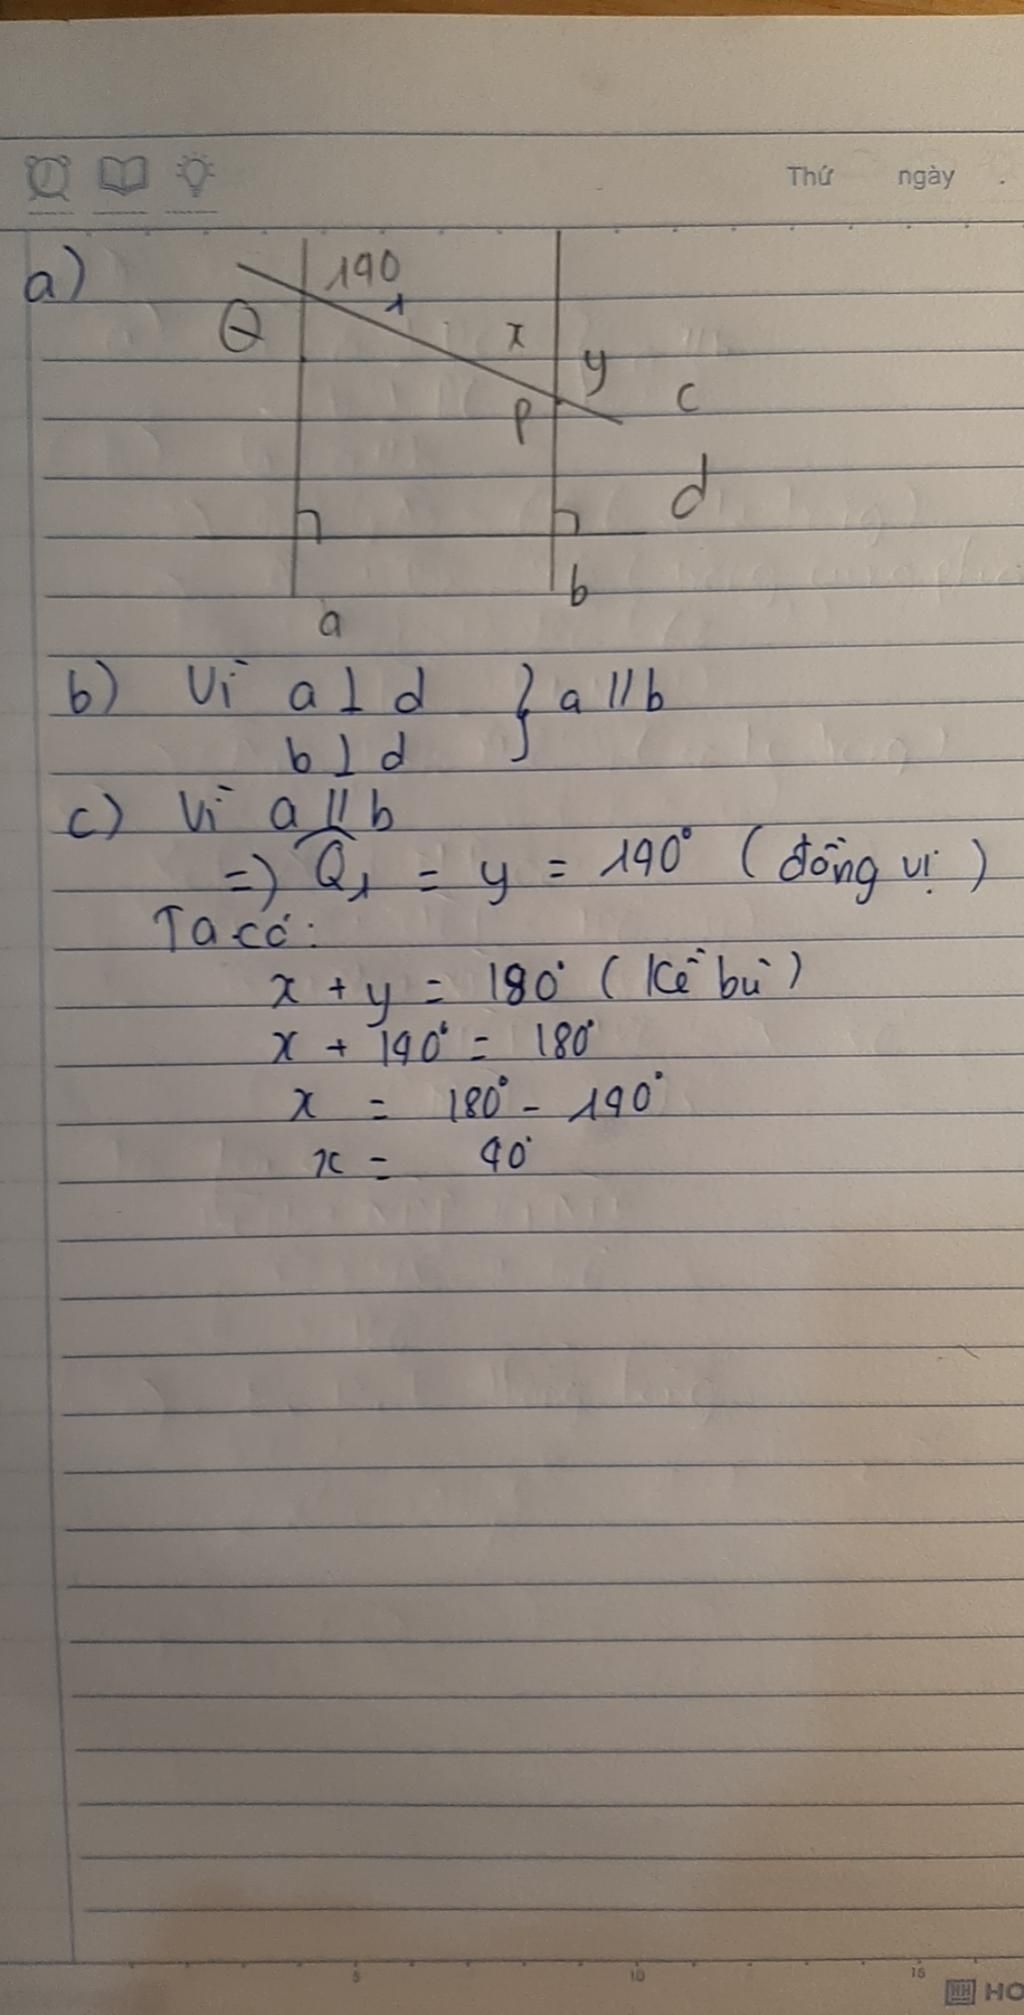 Thứ ngày .
a)
140
1
Q
x
y
P
c
d
b
a
b) Vì a ⊥ d } a // b
b ⊥ d
c) Vì a // b
=) Q̂1 = y = 140° ( đồng vị )
Ta có:
x + y = 180° ( Kề bù )
x + 140° = 180°
x = 180° - 140°
x = 40°
5 10 15
HO